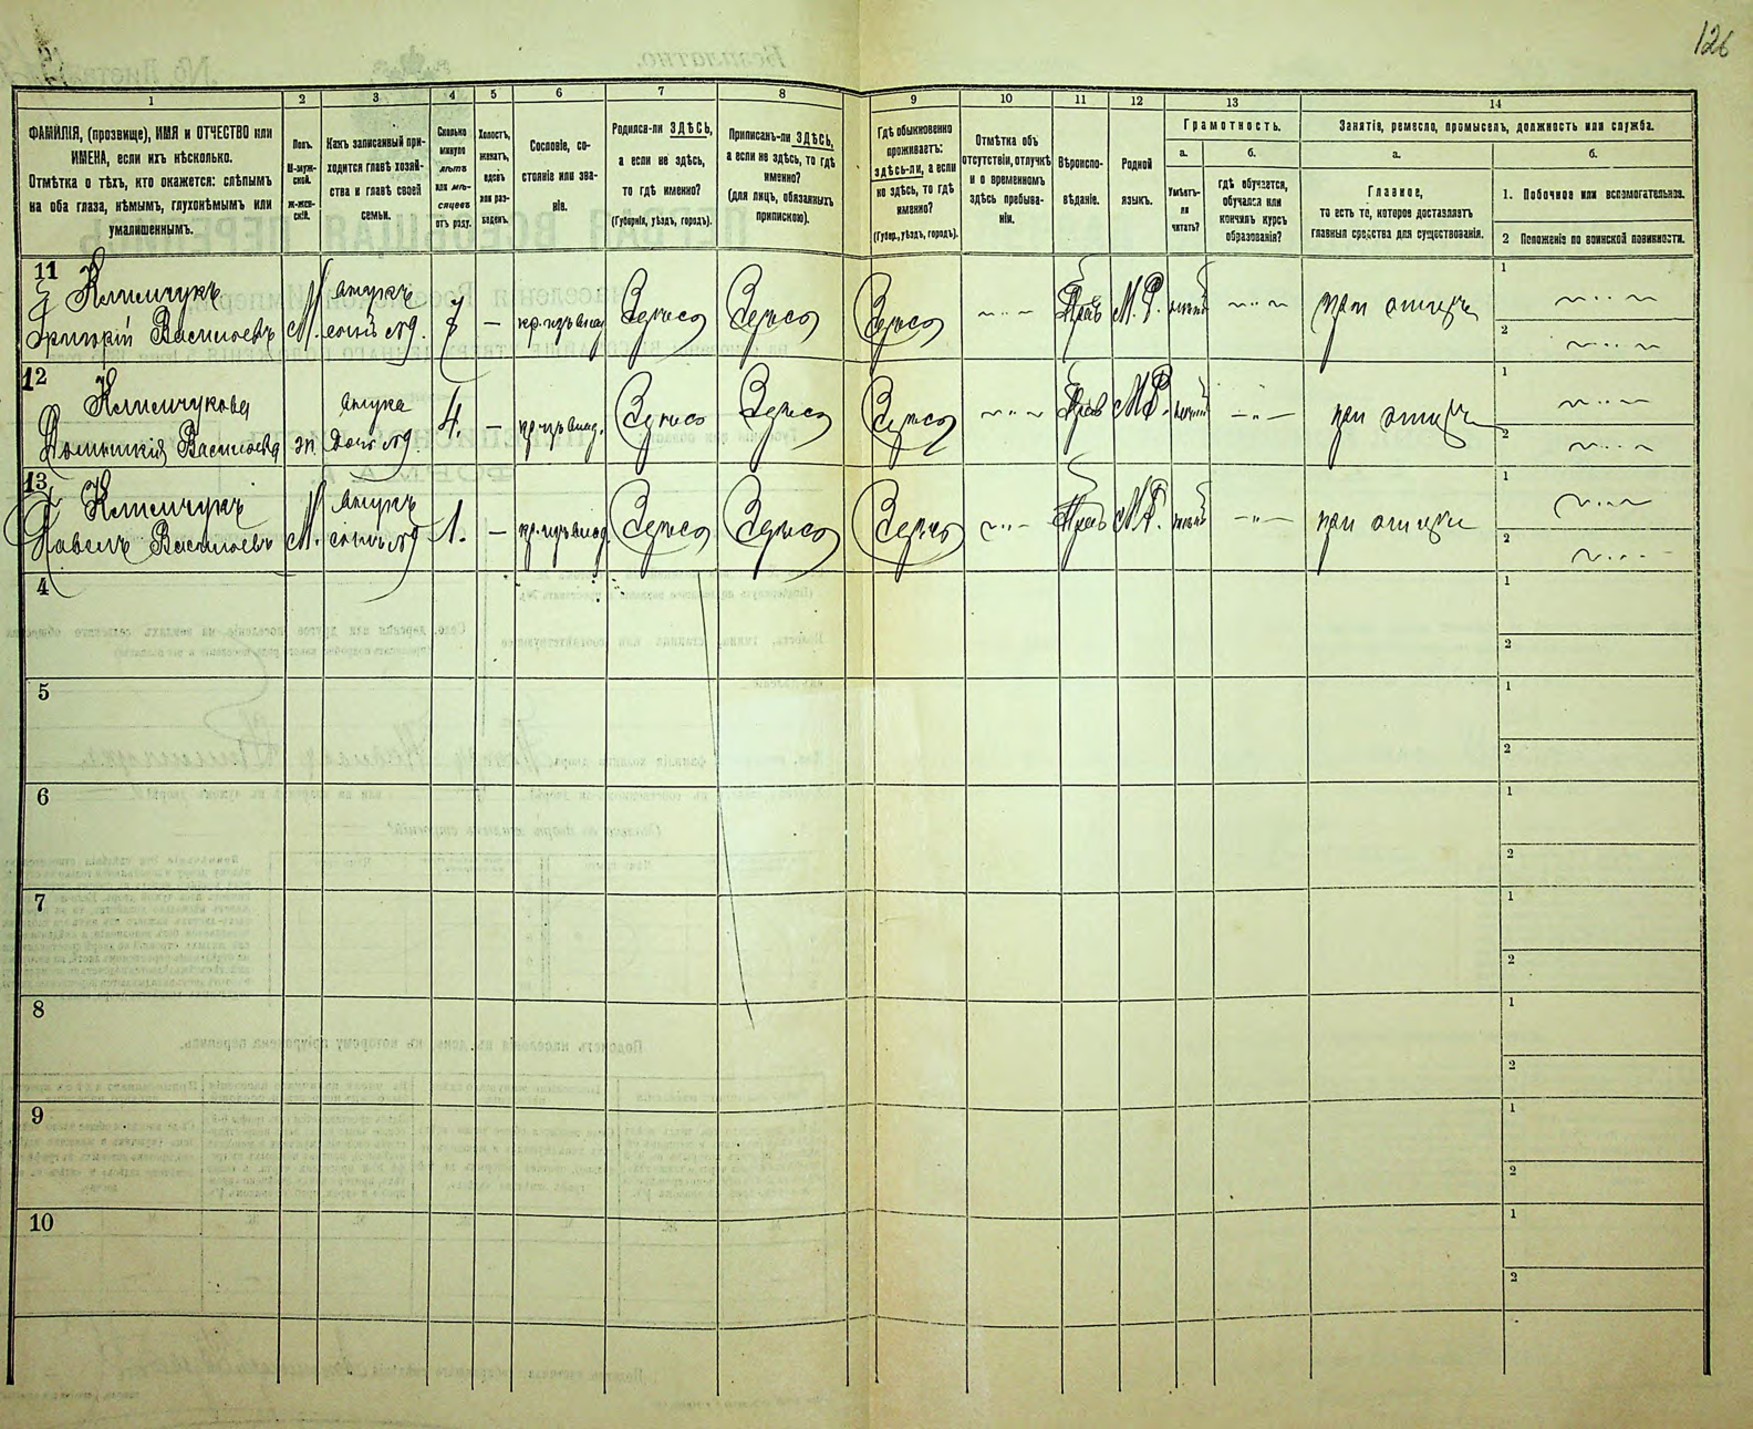 126
1
2
3
4
5
6
7
8
9
10
11
12
13
14
ФАМИЛІЯ, (прозвище), ИМЯ и ОТЧЕСТВО или
ИМЕНА, если ихъ нѣсколько.
Отмѣтка о тѣхъ, кто окажется: слѣпымъ
на оба глаза, нѣмымъ, глухонѣмымъ или
умалишеннымъ.
Полъ.
М-муж-
ской.
Ж-жен-
скій.
Какъ записанный при-
ходится главѣ хозяй-
ства и главѣ своей
семьи.
Сколько
минуло
лѣтъ
или мѣ-
сяцевъ
отъ роду.
Холостъ,
женатъ,
вдовъ
или раз-
веденъ.
Сословіе, со-
стояніе или зва-
ніе.
Родился-ли ЗДѢСЬ,
а если не здѣсь,
то гдѣ именно?
(Губернія, уѣздъ, городъ).
Приписанъ-ли ЗДѢСЬ,
а если не здѣсь, то гдѣ
именно?
(для лицъ, обязанныхъ
припискою).
Гдѣ обыкновенно
проживаетъ:
здѣсь-ли, а если
не здѣсь, то гдѣ
именно?
(Губер., уѣздъ, городъ).
Отмѣтка объ
отсутствіи, отлучкѣ
и о временномъ
здѣсь пребыва-
ніи.
Вѣроиспо-
вѣданіе.
Родной
языкъ.
Грамотность.
а.
Умѣетъ-
ли
читать?
б.
Гдѣ обучается,
обучался или
кончилъ курсъ
образованія?
Занятіе, ремесло, промыселъ, должность или служба.
а.
Главное,
то есть то, которое доставляетъ
главныя средства для существованія.
б.
1. Побочное или вспомогательное.
2 Положеніе по воинской повинности.
11
Климчукъ
Григорій Васильевъ
М.
внукъ
сынъ №9.
7
—
кр. изъ влад.
Здѣсь
Здѣсь
Здѣсь
Прав
М. Р.
при отцѣ
1
2
12
Климчукова
Васильева
ж.
внука
дочь №9.
4.
—
кр. изъ влад.
Здѣсь
Здѣсь
Здѣсь
Прав
М. Р.
при отцѣ
1
2
13
Климчукъ
Павелъ Васильевъ
М.
внукъ
сынъ №9
1.
—
кр. изъ влад.
Здѣсь
Здѣсь
Здѣсь
Прав
М. Р.
при отцѣ
1
2
4
1
2
5
1
2
6
1
2
7
1
2
8
1
2
9
1
2
10
1
2